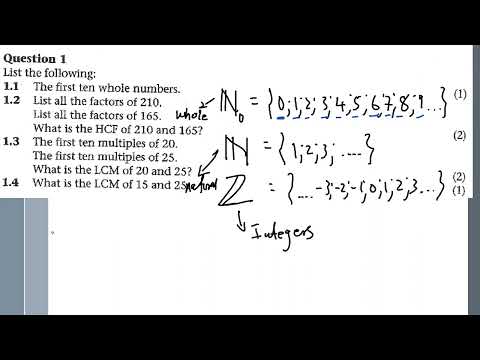 Question 1
List the following:
1.1 The first ten whole numbers. (1)
1.2 List all the factors of 210.
List all the factors of 165.
What is the HCF of 210 and 165? (2)
1.3 The first ten multiples of 20.
The first ten multiples of 25.
What is the LCM of 20 and 25? (2)
1.4 What is the LCM of 15 and 25 (1)
whole ℕ₀ = {0;1;2;3;4;5;6;7;8;9...}
natural ℕ = {1;2;3;....}
ℤ = {....-3;-2;-1;0;1;2;3...}
Integers